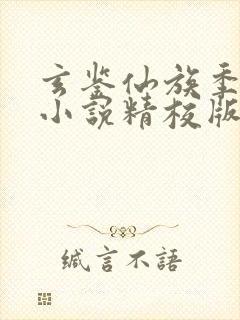 玄鉴仙族季
小說精校版
緘言不語